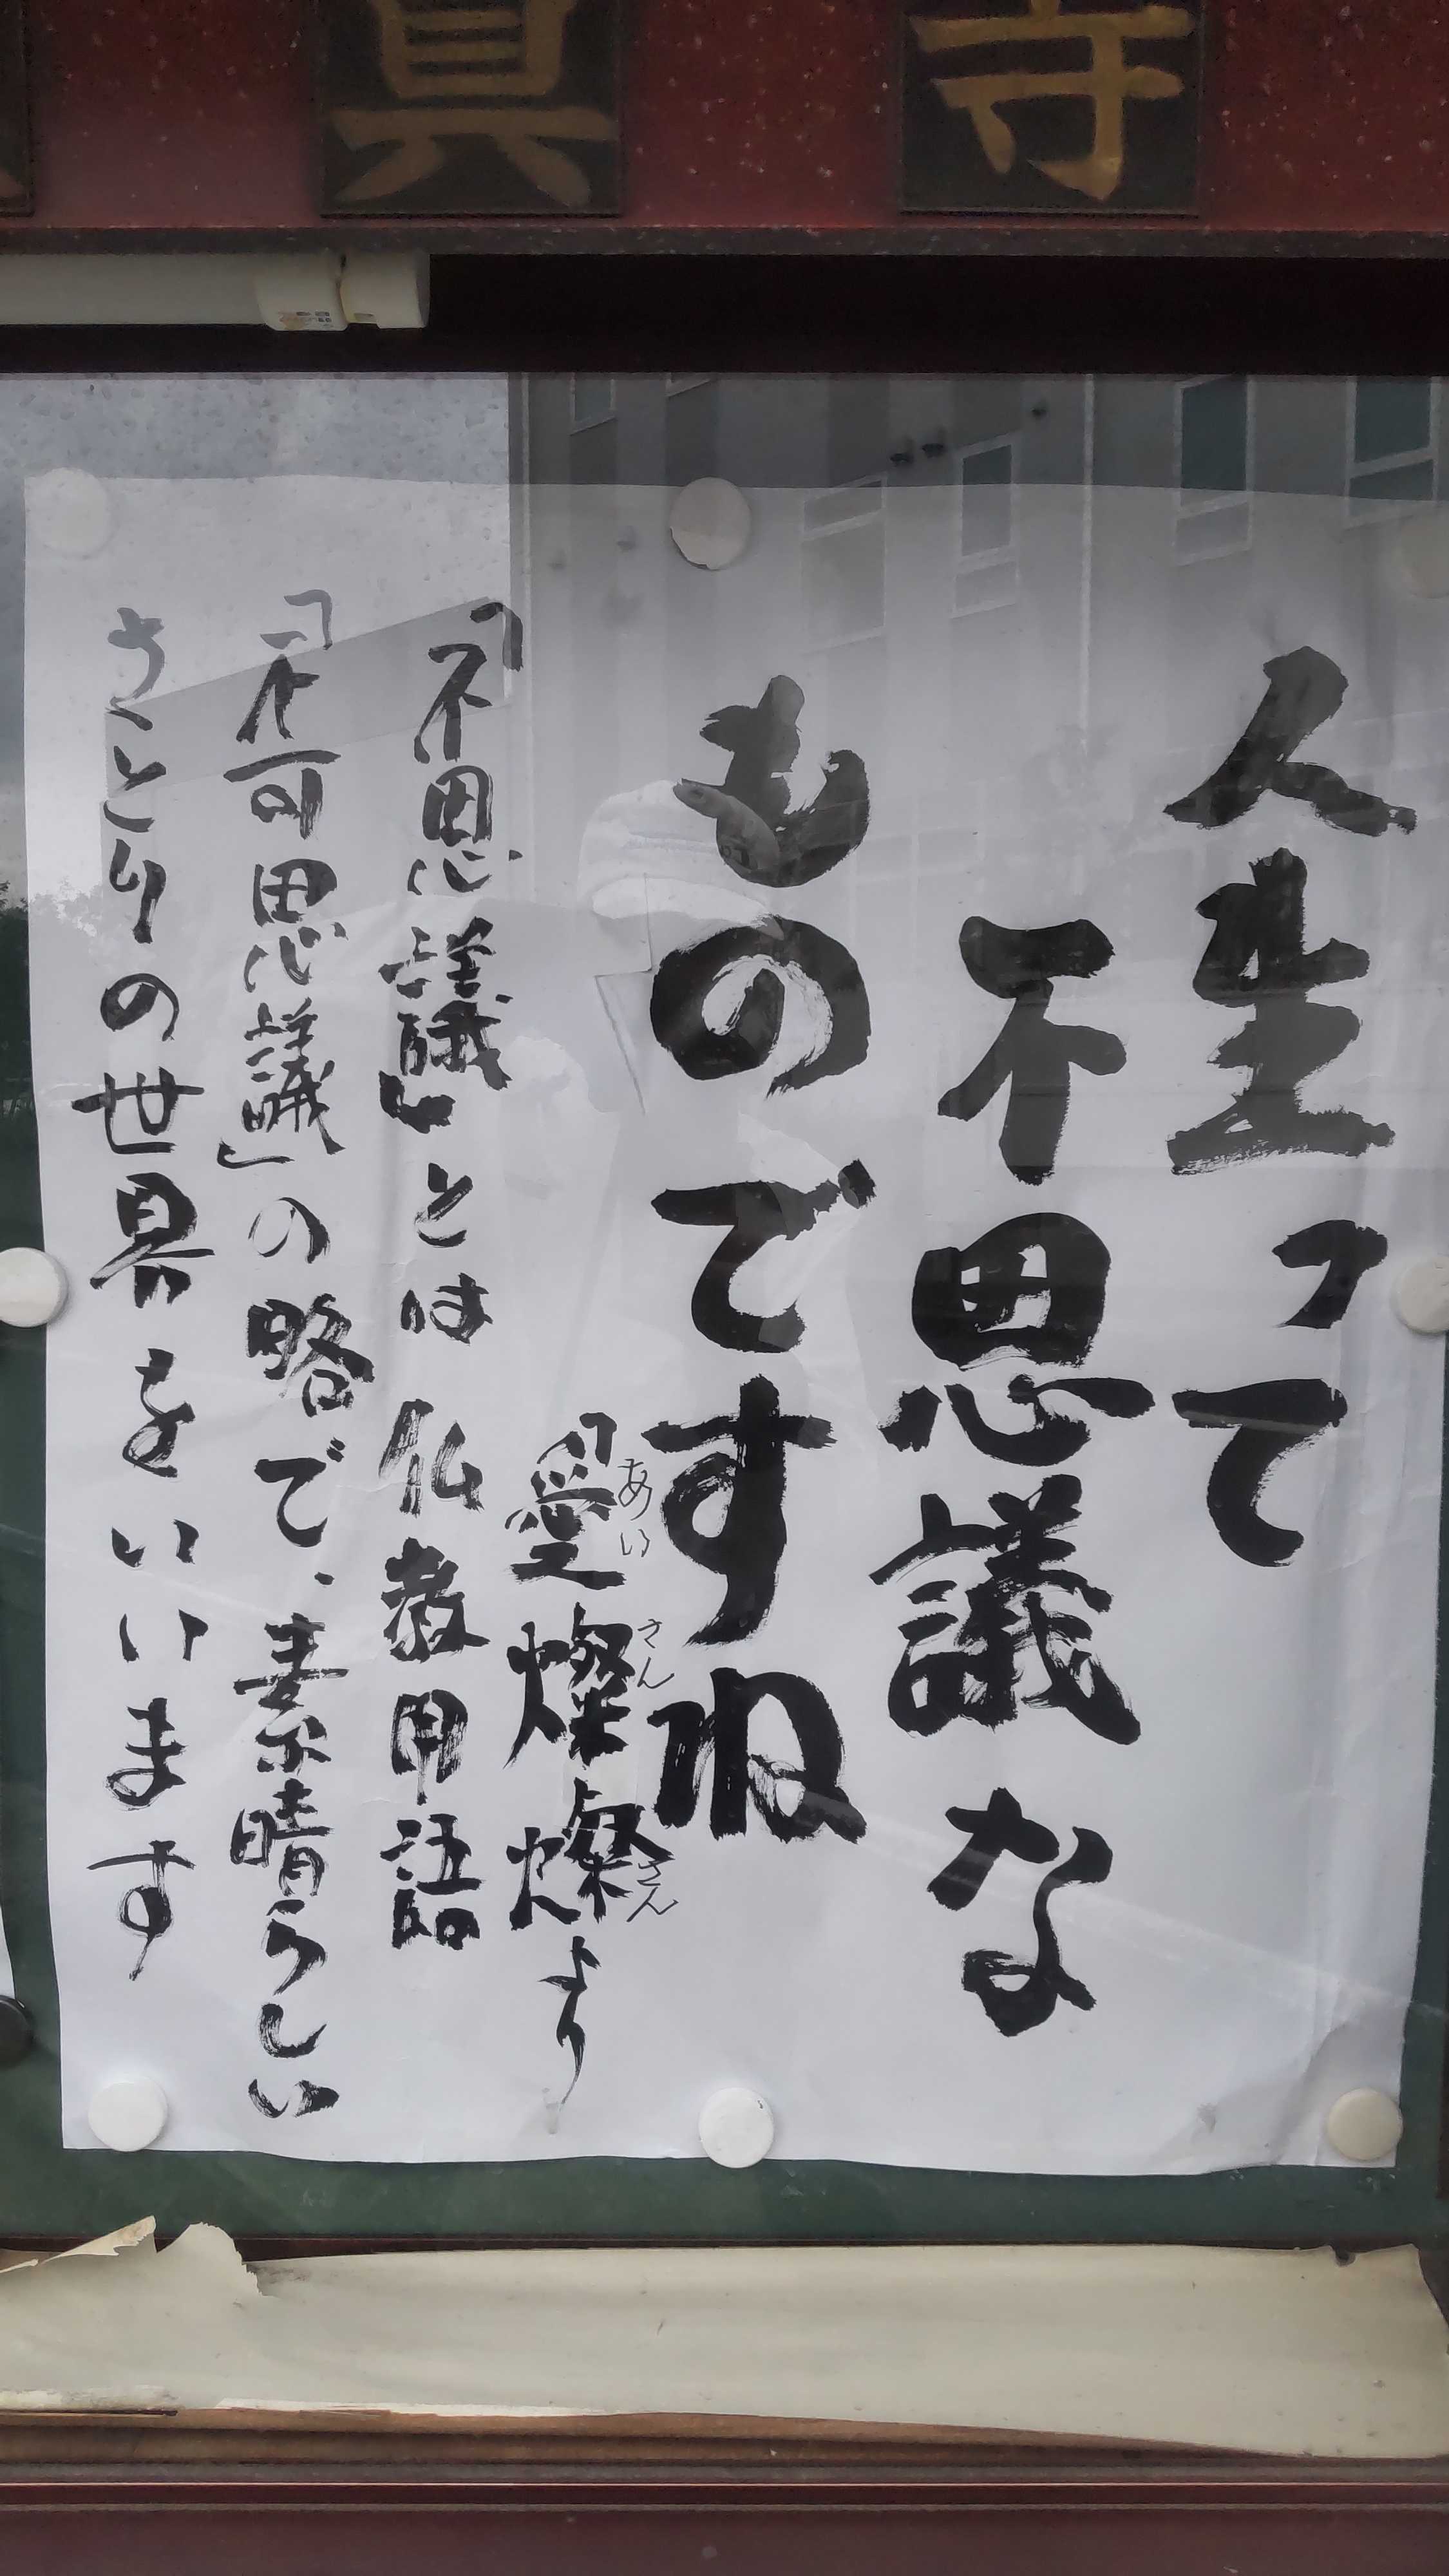 眞寺
人生って
不思議な
ものですね
「愛燦燦より
あいさんさん
「不思議」とは 仏教用語
「不可思議」の略で、素晴らしい
さとりの世界をいいます